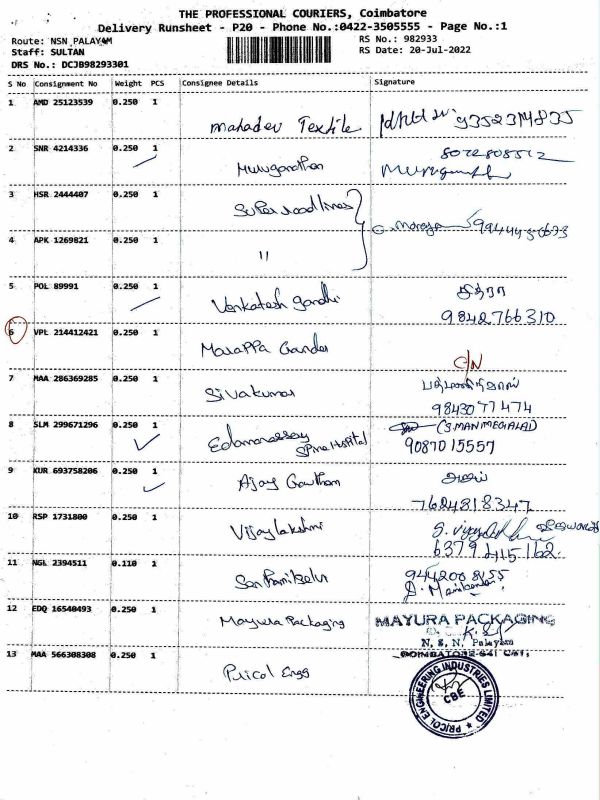 THE PROFESSIONAL COURIERS, Coimbatore
Delivery Runsheet - P20 - Phone No.:0422-3505555 - Page No.:1
Route: NSN PALAYAM
RS No.: 982933
Staff: SULTAN
RS Date: 20-Jul-2022
DRS No.: DCJB98293301
S No Consignment No Weight PCS Consignee Details Signature
1 AMD 25123539 0.250 1
Mahadev Textile
2 SNR 4214336 0.250 1
Murugandhan
3 HSR 2444407 0.250 1
Super roadlines
4 APK 1269821 0.250 1
"
5 POL 89991 0.250 1
Venkatesh gandhi சித்ரா
9842766310
6 VPL 214412421 0.250 1
Marappa Gander C/N
7 MAA 286369285 0.250 1
Sivakumar
9843077474
8 SLM 299671296 0.250 1
(S.MANIMEGALAI)
Spine Hospital 9087015557
9 KUR 693758206 0.250 1
Ajay Gowtham
7624818347
10 RSP 1731800 0.250 1
Vijaylakshmi
6379415162
11 NGL 2394511 0.110 1
Senthamilselvi
12 EDQ 16540493 0.250 1
Mayura Packaging MAYURA PACKAGING
N. S. N. Palayam
COIMBATORE-641
13 MAA 566308308 0.250 1
Pricol Engg
PRICOL ENGINEERING INDUSTRIES LIMITED
CBE